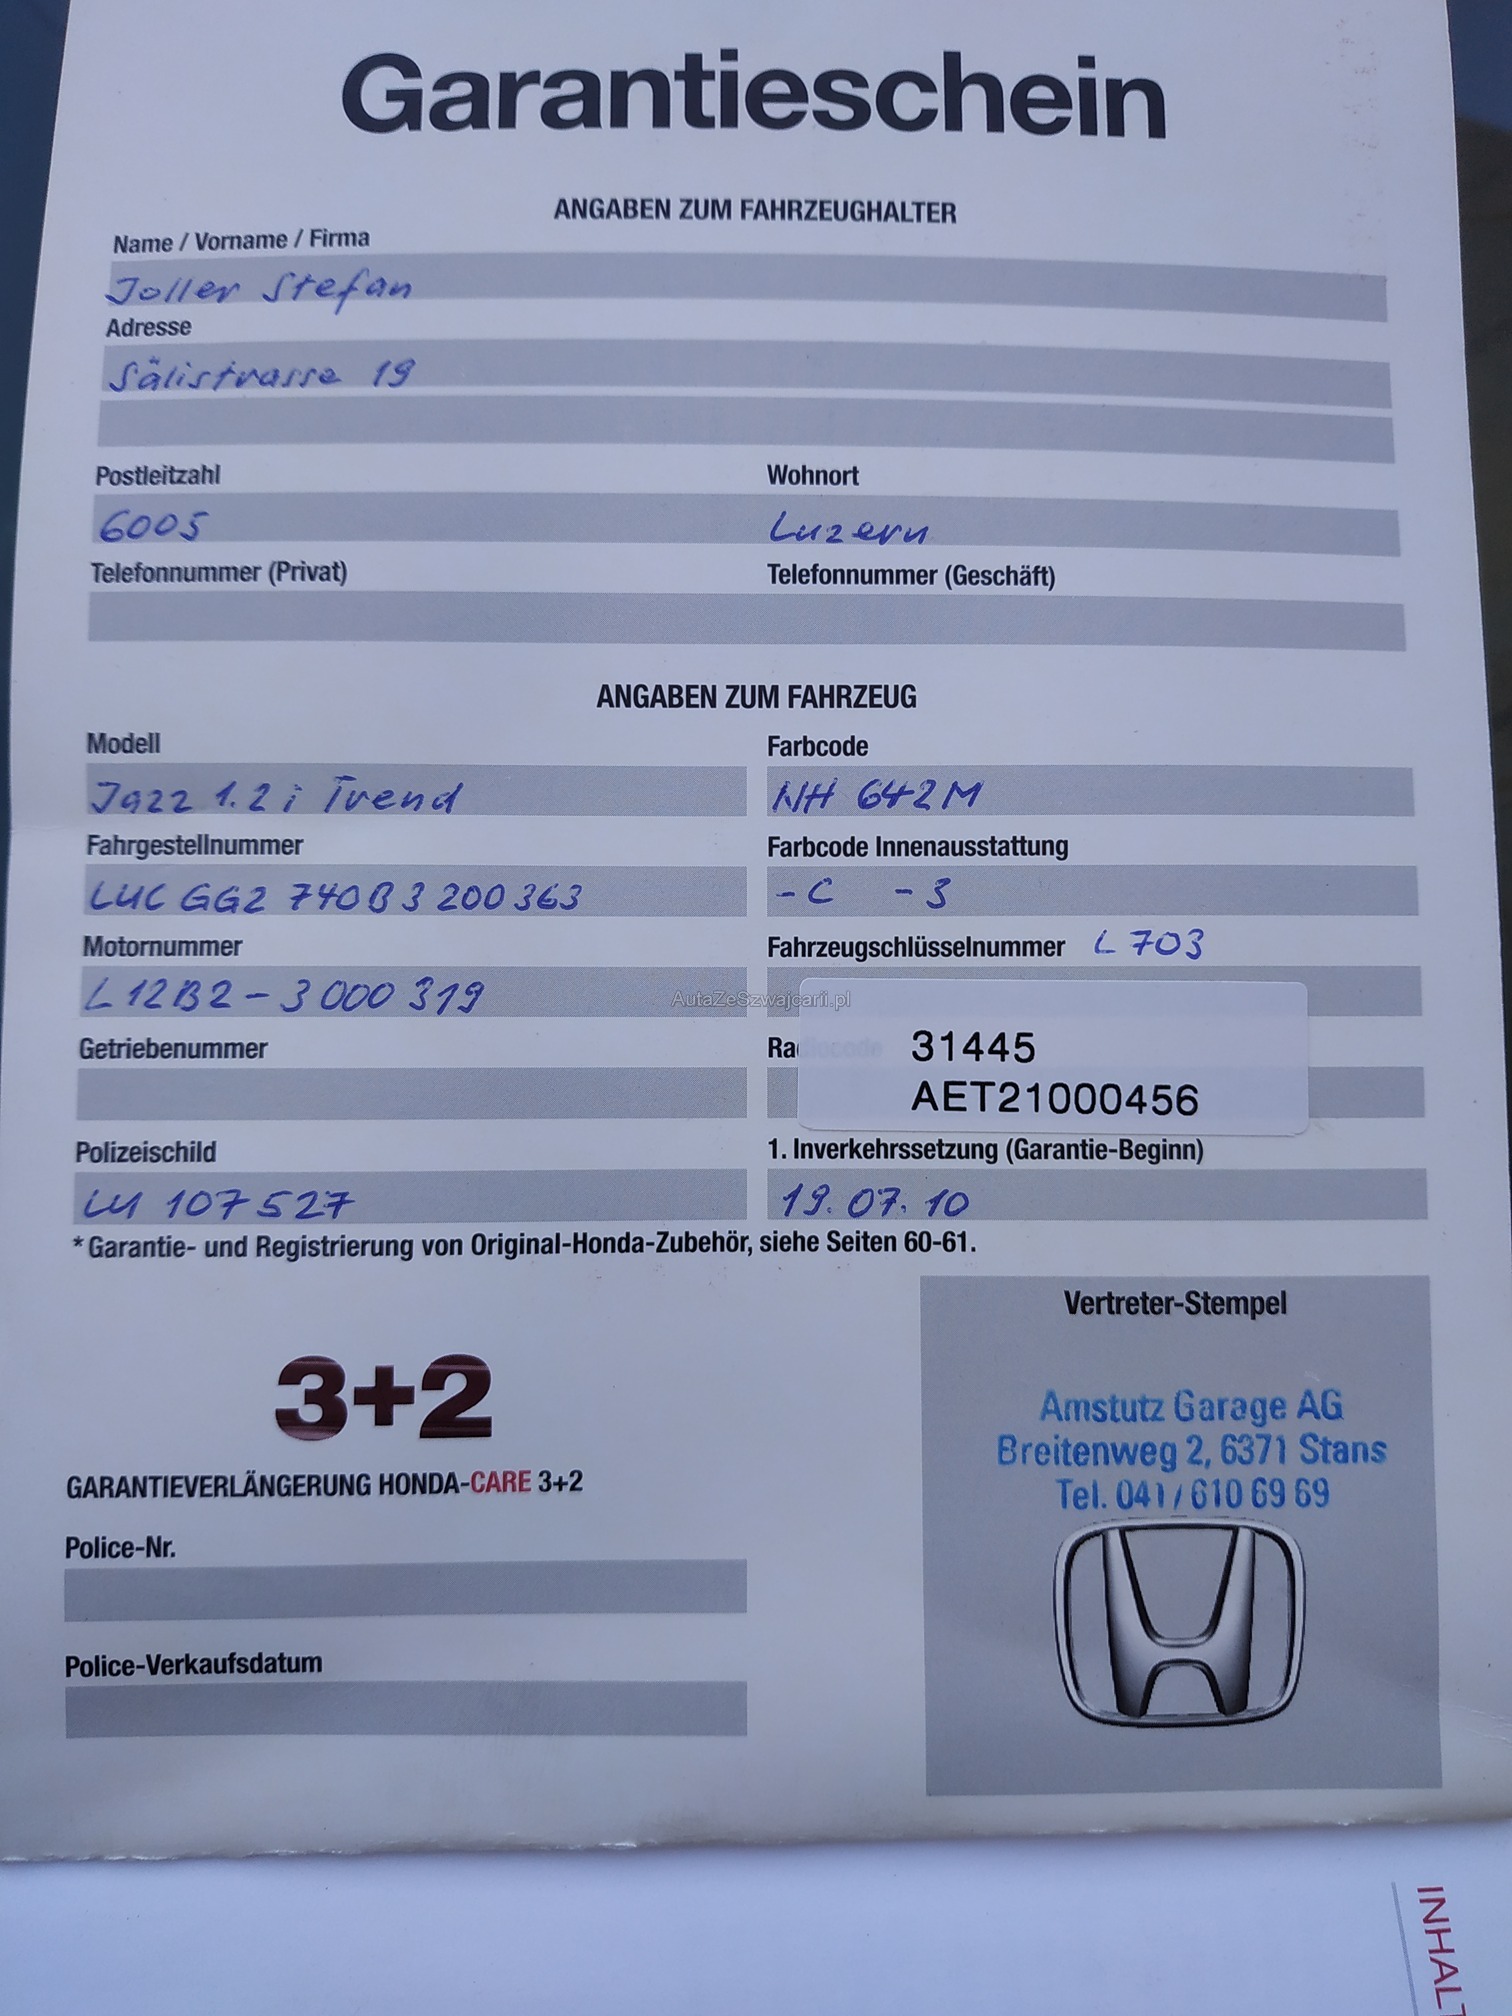 Garantieschein
ANGABEN ZUM FAHRZEUGHALTER
Name / Vorname / Firma
Joller Stefan
Adresse
Sälistrasse 19
Postleitzahl Wohnort
6005 Luzern
Telefonnummer (Privat) Telefonnummer (Geschäft)
ANGABEN ZUM FAHRZEUG
Modell Farbcode
Jazz 1.2i Trend NH 642M
Fahrgestellnummer Farbcode Innenausstattung
LUC GG2 740B3 200363 -C -3
Motornummer Fahrzeugschlüsselnummer L703
L12B2-3000319
AutaZeSzwajcarii.pl
Getriebenummer Radiocode 31445
AET21000456
Polizeischild 1. Inverkehrssetzung (Garantie-Beginn)
LU 107527 19.07.10
* Garantie- und Registrierung von Original-Honda-Zubehör, siehe Seiten 60-61.
Vertreter-Stempel
Amstutz Garage AG
Breitenweg 2, 6371 Stans
Tel. 041 / 610 69 69
3+2
GARANTIEVERLÄNGERUNG HONDA-CARE 3+2
Police-Nr.
Police-Verkaufsdatum